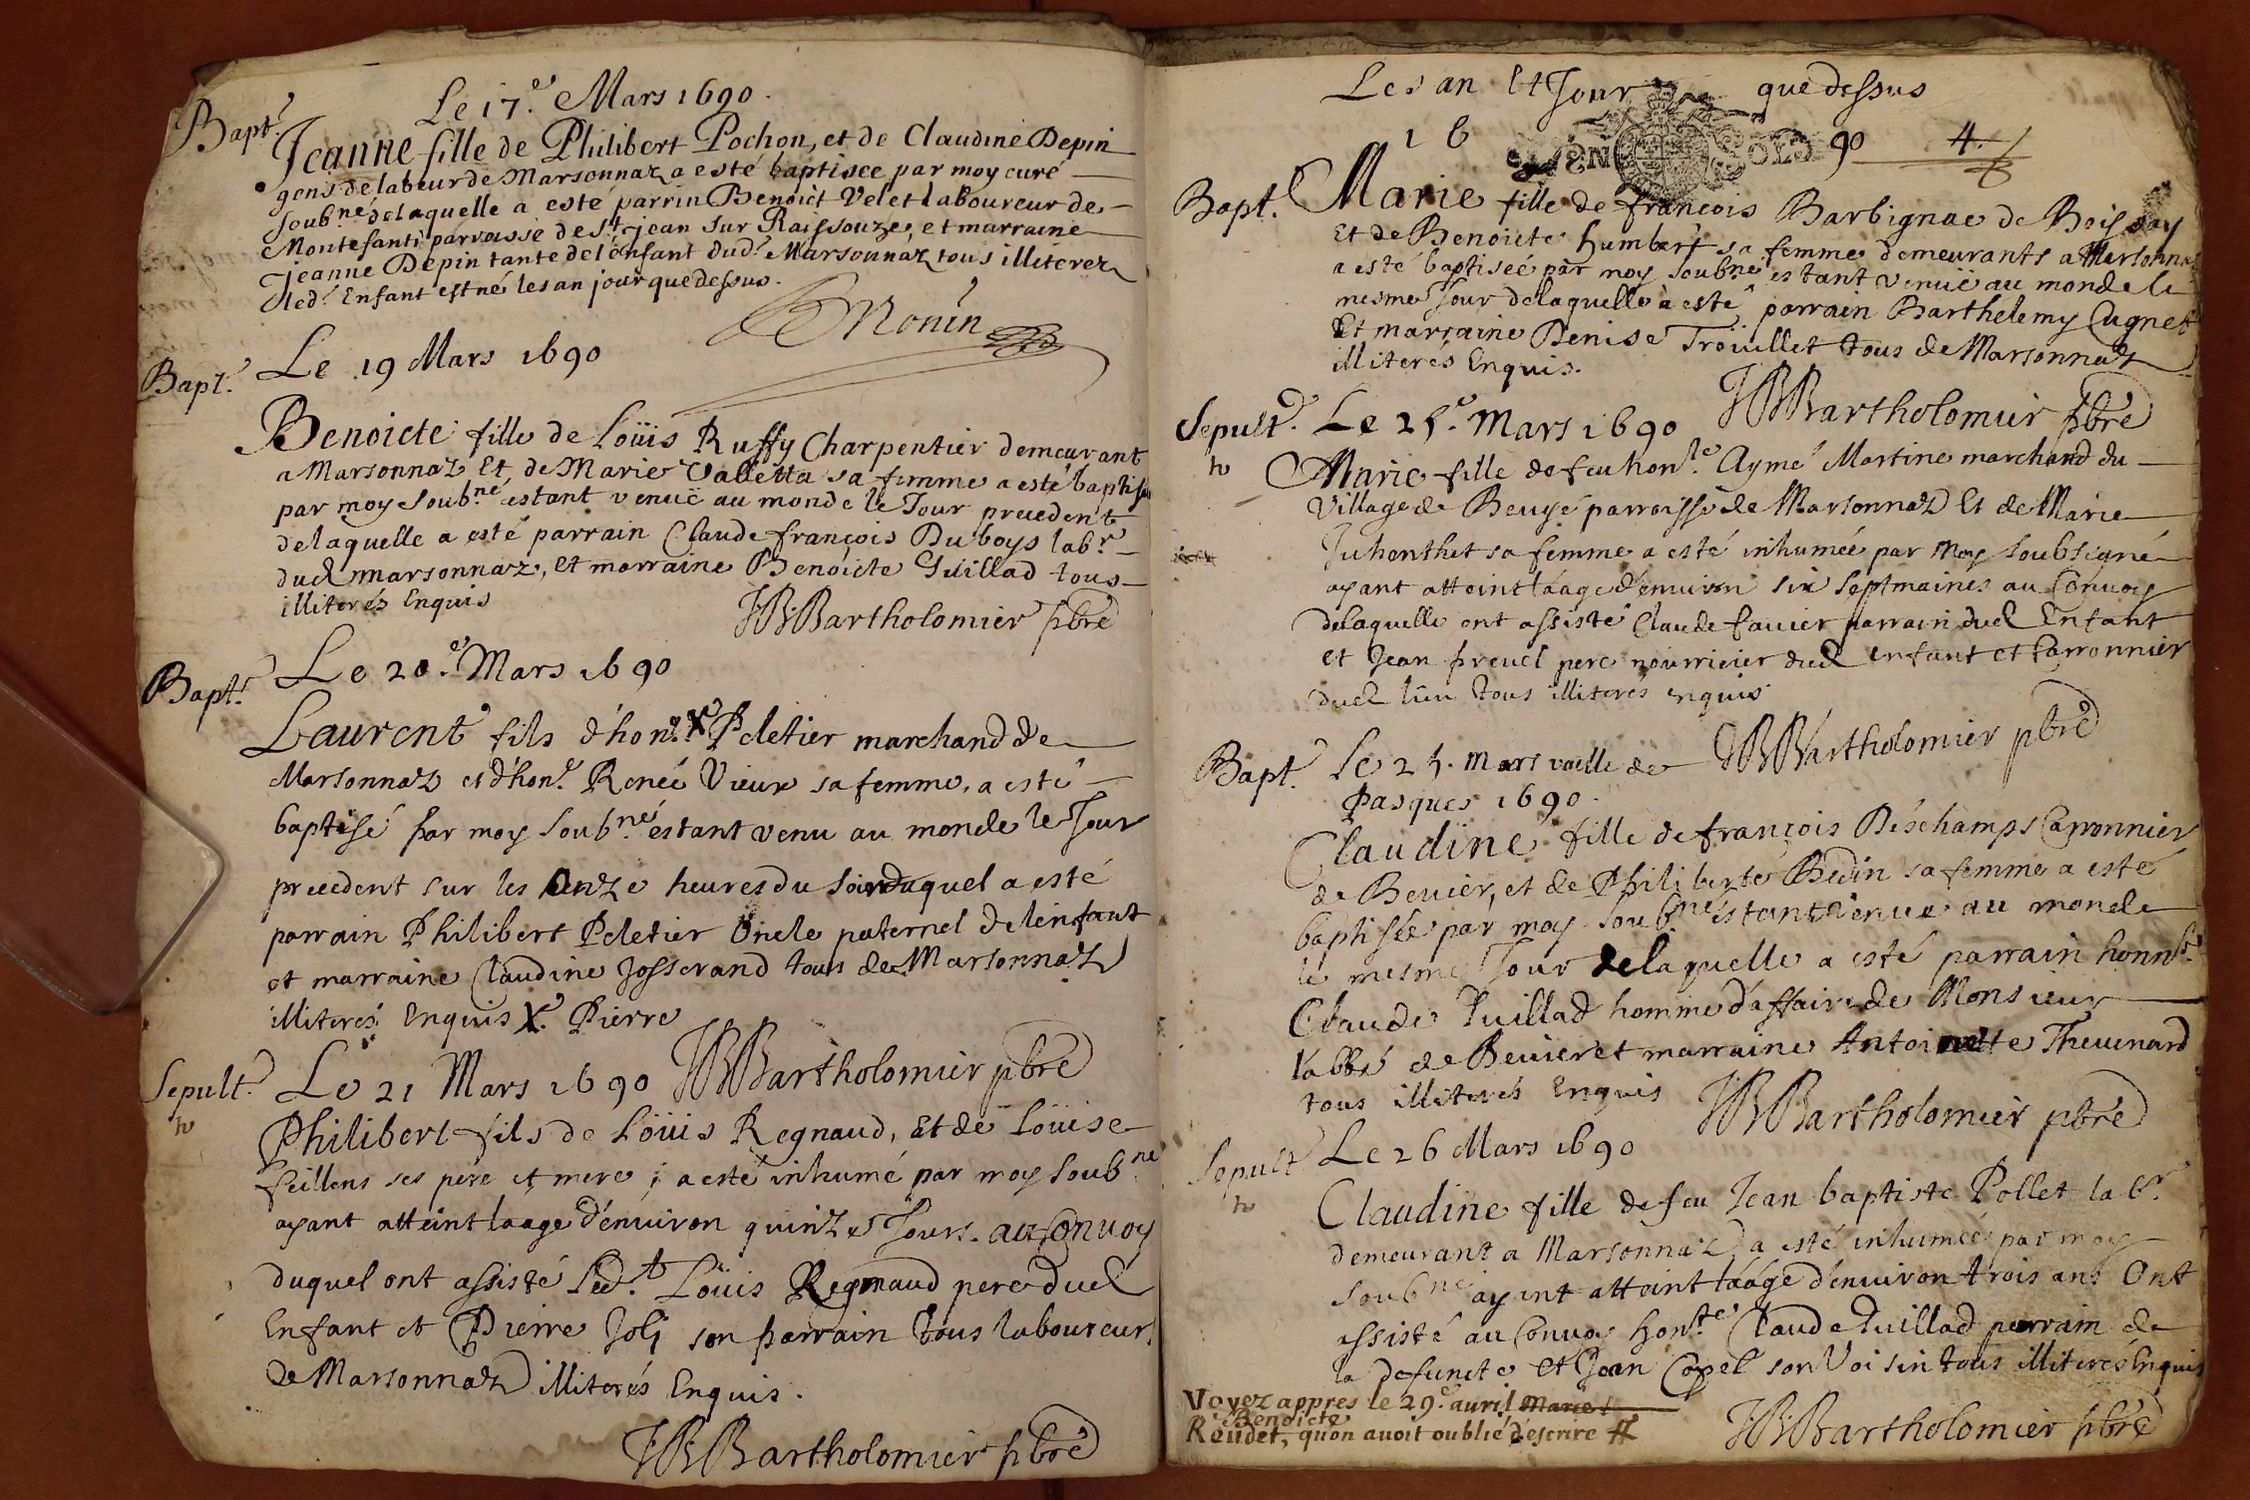 Le 17.e Mars 1690.
Bapt.
Jeanne fille de Philibert Pochon, et de Claudine Depin
gens de labeur de Marsonnaz a esté baptisee par moy curé
soub.né delaquelle a esté parrin Benoict Velet laboureur de
Montefanti parroisse de St jean sur Raissouze, et marraine
jeanne Depin tante de l'enfant dud.t Marsonnaz tous illiterez
led.t Enfant est né les an jour que dessus.
Bapt. Le 19 Mars 1690
Benoicte fille de Loüis Ruffy Charpentier demeurant
a Marsonnaz Et de Marie Valletta sa femme a esté baptisee
par moy soub.né estant venüe au monde le Jour precedent
delaquelle a esté parrain Claude françois Duboys lab.r
dud marsonnaz, Et marraine Benoicte Guillad tous
illiterés Enquis JBBartholomier pbre
Bapt. Le 20.e Mars 1690
Laurent fils d'hon.e X Peletier marchand de
Marsonnaz et d'hon.e Renée Vieux sa femme, a esté
baptisé par moy soub.né estant venu au monde le Jour
precedent sur les Onze heures du soir duquel a esté
parrain Philibert Peletier Oncle paternel de lenfant
et marraine Claudine Josserand tous de Marsonnaz
illiterés Enquis X. Pierre
JBBartholomier pbre
Sepult. Le 21 Mars 1690
Philibert fils de Loüis Regnaud, Et de Loüise
feillens ses pere et mere, a esté inhumé par moy soub.né
ayant atteint laage d'environ quinze Jours. au Convoy
duquel ont assisté led.t Loüis Regnaud pere dud
Enfant et Pierre Joly son parrain tous laboureur.
de Marsonnaz illiterés Enquis.
JBBartholomier pbre
Les an et Jour que dessus
16 90 4.
Bapt. Marie fille de francois Barbignac de Boissay
Et de Benoicte humbert sa femme demeurants a Marsonnaz
a esté baptiseé par moy soub.né estant venüe au monde le
mesme Jour delaquelle a esté parrain Barthelemy Cugnet
Et marraine Denise Troüillet tous de Marsonnaz
illiterés Enquis.
JBBartholomier pbre
Sepult. Le 25.e Mars 1690
Marie fille de feu hon.le Aymé Martine marchand du
Village de Beuyé parroisse de Marsonnaz Et de Marie
Juhonthet sa femme a esté inhumée par moy soubsigné
ayant atteint laage d'environ six septmaines au Convoy
delaquelle ont assisté Claude favier parrain dud Enfant
et Jean preuel pere nourricier dud enfant et Carronnier
dud lieu tous illiteres enquis
JBBartholomier pbre
Bapt. Le 25. Mars veille de
Pasques 1690.
Claudine fille de françois Déschamps Carronnier
de Bevier, et de Philiberte Bedin sa femme a esté
baptisée par moy soub.né estant venue au monde
le mesme Jour delaquelle a esté parrain honn.le
Claude Guillad homme d'affaire de Monsieur
l'abbé de Bevier et marraine Antoinette Thevenard
tous illiterés Enquis JBBartholomier pbre
Sepult Le 26 Mars 1690
Claudine fille de feu Jean baptiste Pollet lab.r
demeurant a Marsonnaz a esté inhumeé par moy
soub.né ayant atteint laage d'environ trois ans Ont
assisté au Convoy Hon.te Claude Guillad parrain de
la defuncte et Jean Copel son Voisin tous illiterés Enquis
JBBartholomier pbre
Voyez appres le 29.e avril
Benoicte
Reudet, qu'on avoit oublié d'escrire